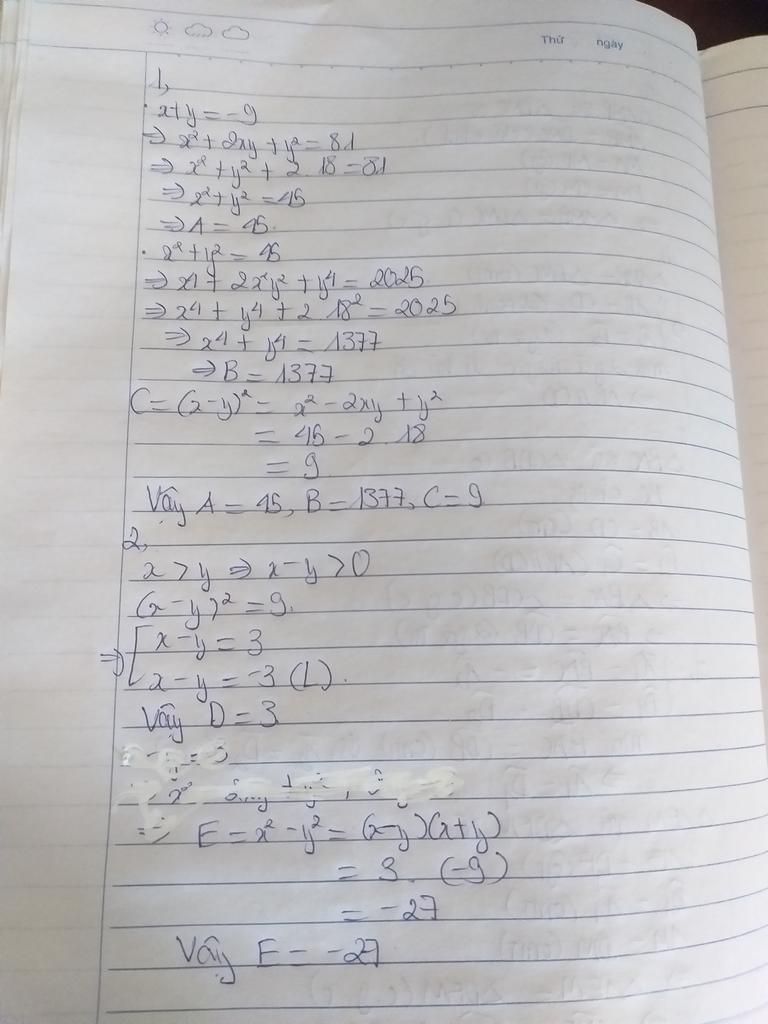 Thứ ngày
1,
. x+y = -9
⇒ x² + 2xy + y² = 81
⇒ x² + y² + 2 18 = 81
⇒ x² + y² = 45
⇒ A = 45.
. x² + y² = 45
⇒ x⁴ + 2x²y² + y⁴ = 2025
⇒ x⁴ + y⁴ + 2 18² = 2025
⇒ x⁴ + y⁴ = 1377
⇒ B = 1377
C = (x-y)² = x² - 2xy + y²
= 45 - 2 . 18
= 9
Vậy A = 45, B = 1377, C = 9
2,
x > y ⇒ x-y > 0
(x-y)² = 9.
⇒ [ x-y = 3
x-y = -3 (L).
Vậy D = 3
⇒ E = x² - y² = (x-y)(x+y)
= 3 . (-9)
= -27
Vậy E = -27